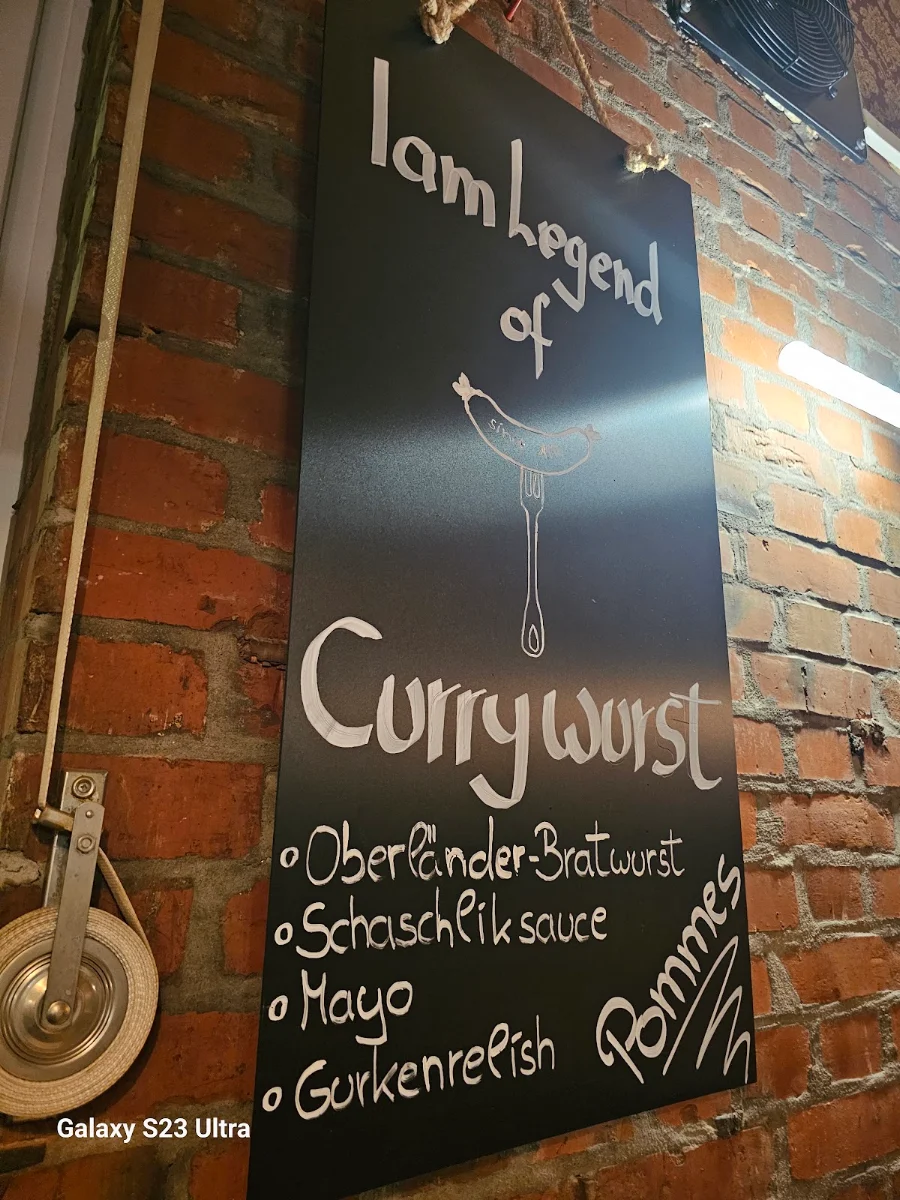 I am Legend
of
Currywurst
Oberländer-Bratwurst
Schaschliksauce
Mayo
Gurkenrelish
Pommes
Galaxy S23 Ultra